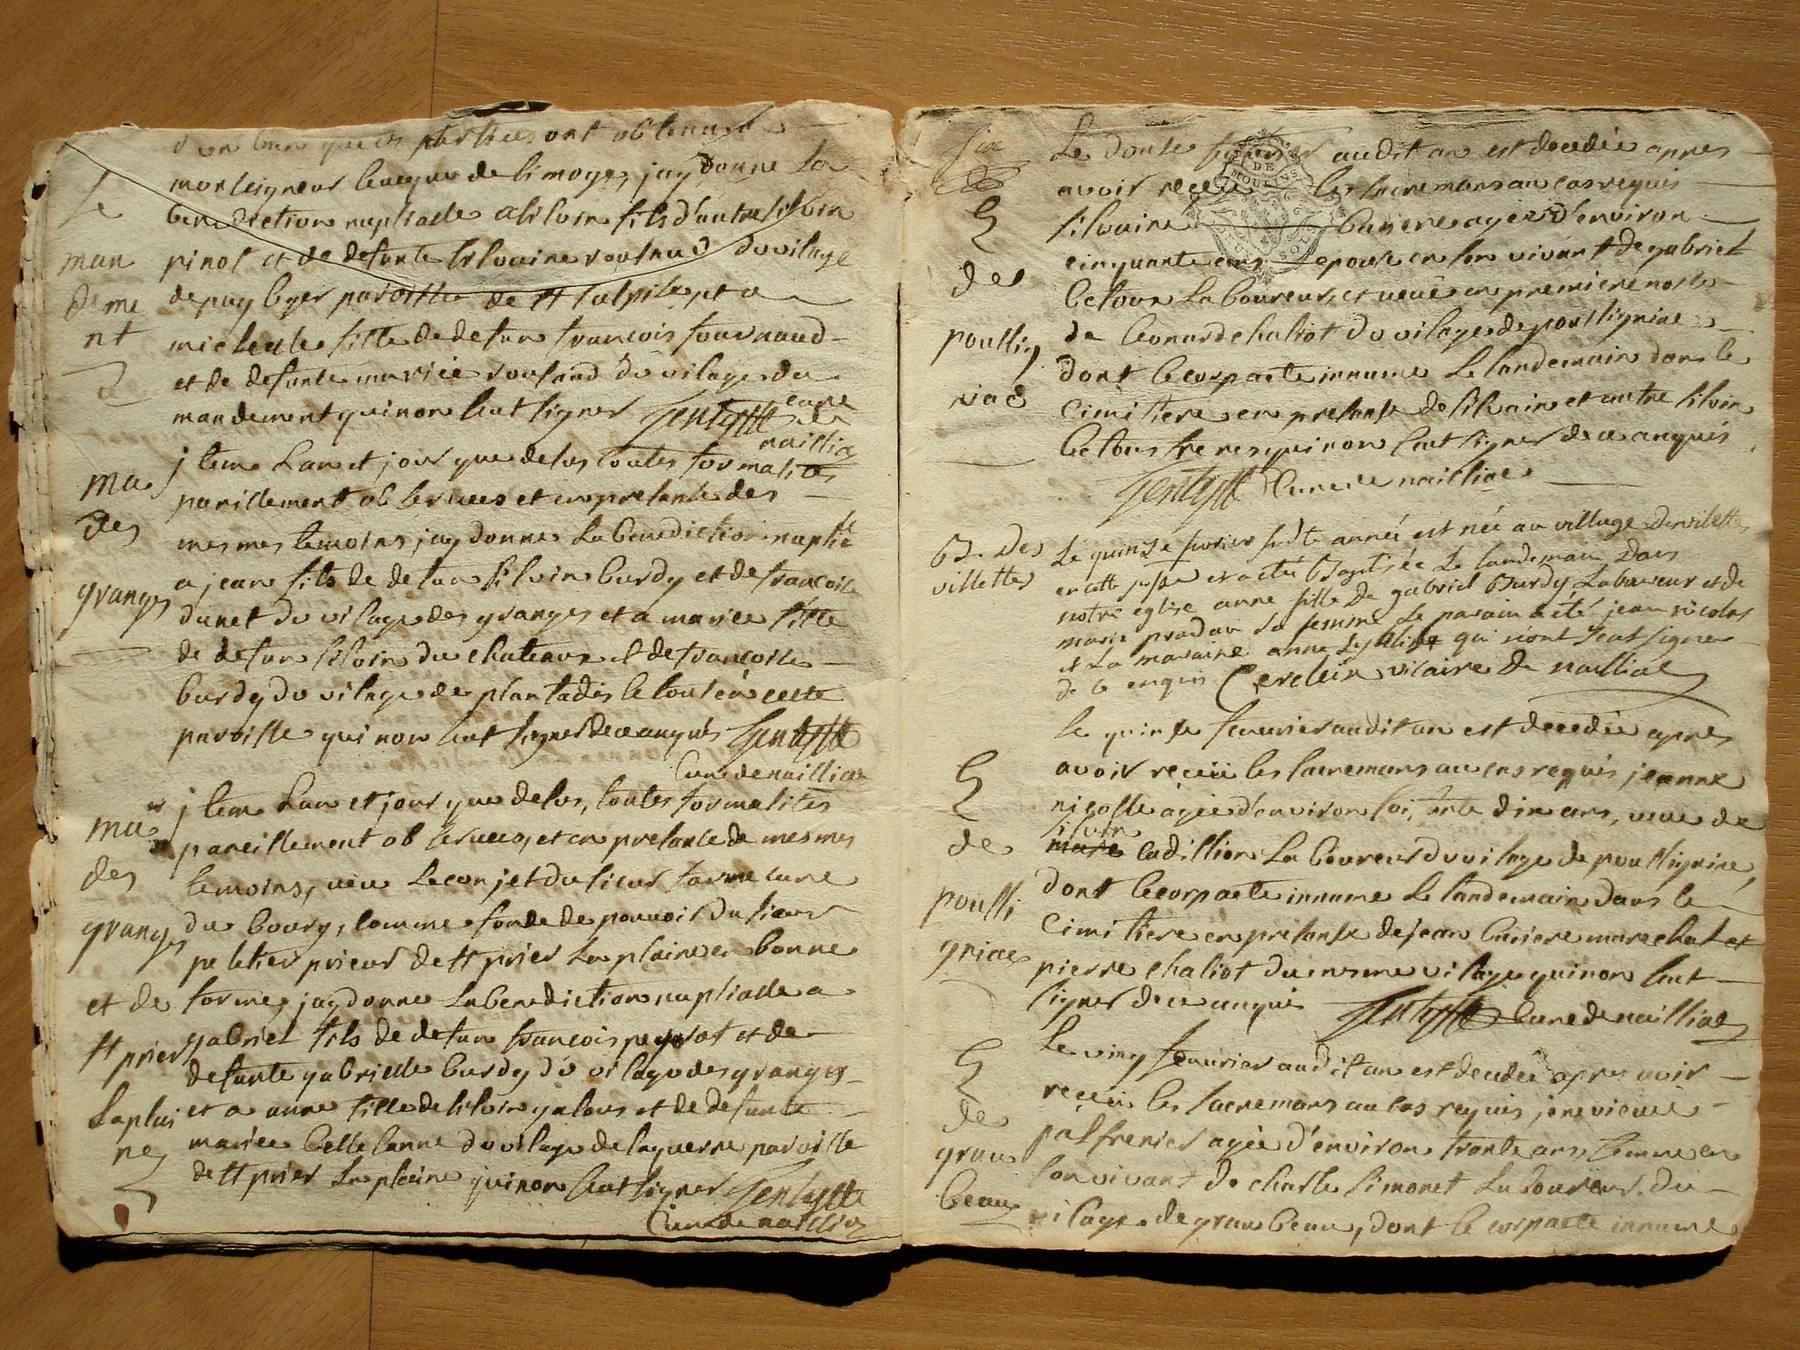 que les parties ont obtenu
monseigneur leveque de limoges jay donne la
benediction nuptialle a silvin fils d'autre silvin
pinot et de defunte silvaine roufnad du vilage
de puy lyer paroisse de st sulpice et a
michelle fille de defun francois fournaud
et de defunte mariee roufaud du vilage du
mandement qui non seut signer curé
de
nailliac
le
man
deme
nt
jtem Lan et jour que desus toutes formalites
pareillement observees et en presante des
mesmes temoins jay donne La benediction nuptialle
a jean fils de defun silvin burdy et de francoise
dunet du vilage des granges et a mariee fille
de defun silvin du chateaux et de francoise
burdy du vilage de plantadis le tout en cette
paroisse qui non seut signer de ce anquis
Curé de nailliac
ma
des
granges
jtem Lan et jour que desus, toutes formalites
pareillement observees, et en presante de mesmes
temoins, veu Le conjet du sieur curé
du bourg, comme fondé de pouvoir du sieur
peletier prieur de st prier La plaine en bonne
forme, jay donne La benediction nuptialle a
gabriel fils de defun francois peyrot et de
defunte gabrielle burdy du vilage des granges
et a anne fille de silvin galous et de defunte
mariee bellelanne du vilage de laguerre paroisse
de st prier La plaine qui non seut signer
Curé de nailliac
ma
des
granges
et de
st prier
Laplai
ne
six
Le douse audit an est decedée apres
avoir receu les sacremans au cas requis
silvaine bariere agee d'environ
cinquante ans epouse en son vivant de gabriel
betour Laboureur, et veuve en premiere nosse
de leonard chaliot du vilage de poussigniac
dont le corp a ete innumé Le landemain dans le
cimitiere en presanse de silvain et autre silvin
betous freres qui non seut signer de ce anquis
Curé de nailliac
DE
MOULINS
de
poussig
niac
Le quinse fevrier sudte année est née au village Desvilettes
en cette psse et a été Baptisée Le landemain dans
notre eglise anne fille de gabriel Burdy Laboureur et de
marie pradeau sa femme Le parain a été jean nicolas
et La maraine anne qui n'ont seut signer
de ce enquis Cerclier vicaire de nailliac
B. des
villettes
Le quinse feuvrier audit an est decedée apres
avoir receu les sacremans au cas requis jeanne
nicolle agée d'environ soisante dix ans, veuve de
silvin
cadillion Laboureur du vilage de poussigniac,
dont le corp a ete innumé Le landemain dans le
Cimitiere en presanse de jean bariere marechal et
pierre chaliot du mesme vilage qui non seut
signer de ce anquis Curé de nailliac
de
poussi
gniac
Le ving feuvrier audit an est decedée apres avoir
receu les sacremans au cas requis, jenevieve
palfrenier agée d'environ trante ans, femme en
son vivant de charle simonet Laboureur du
vilage de graubeau, dont le corp a ete innumé
de
grau
beau